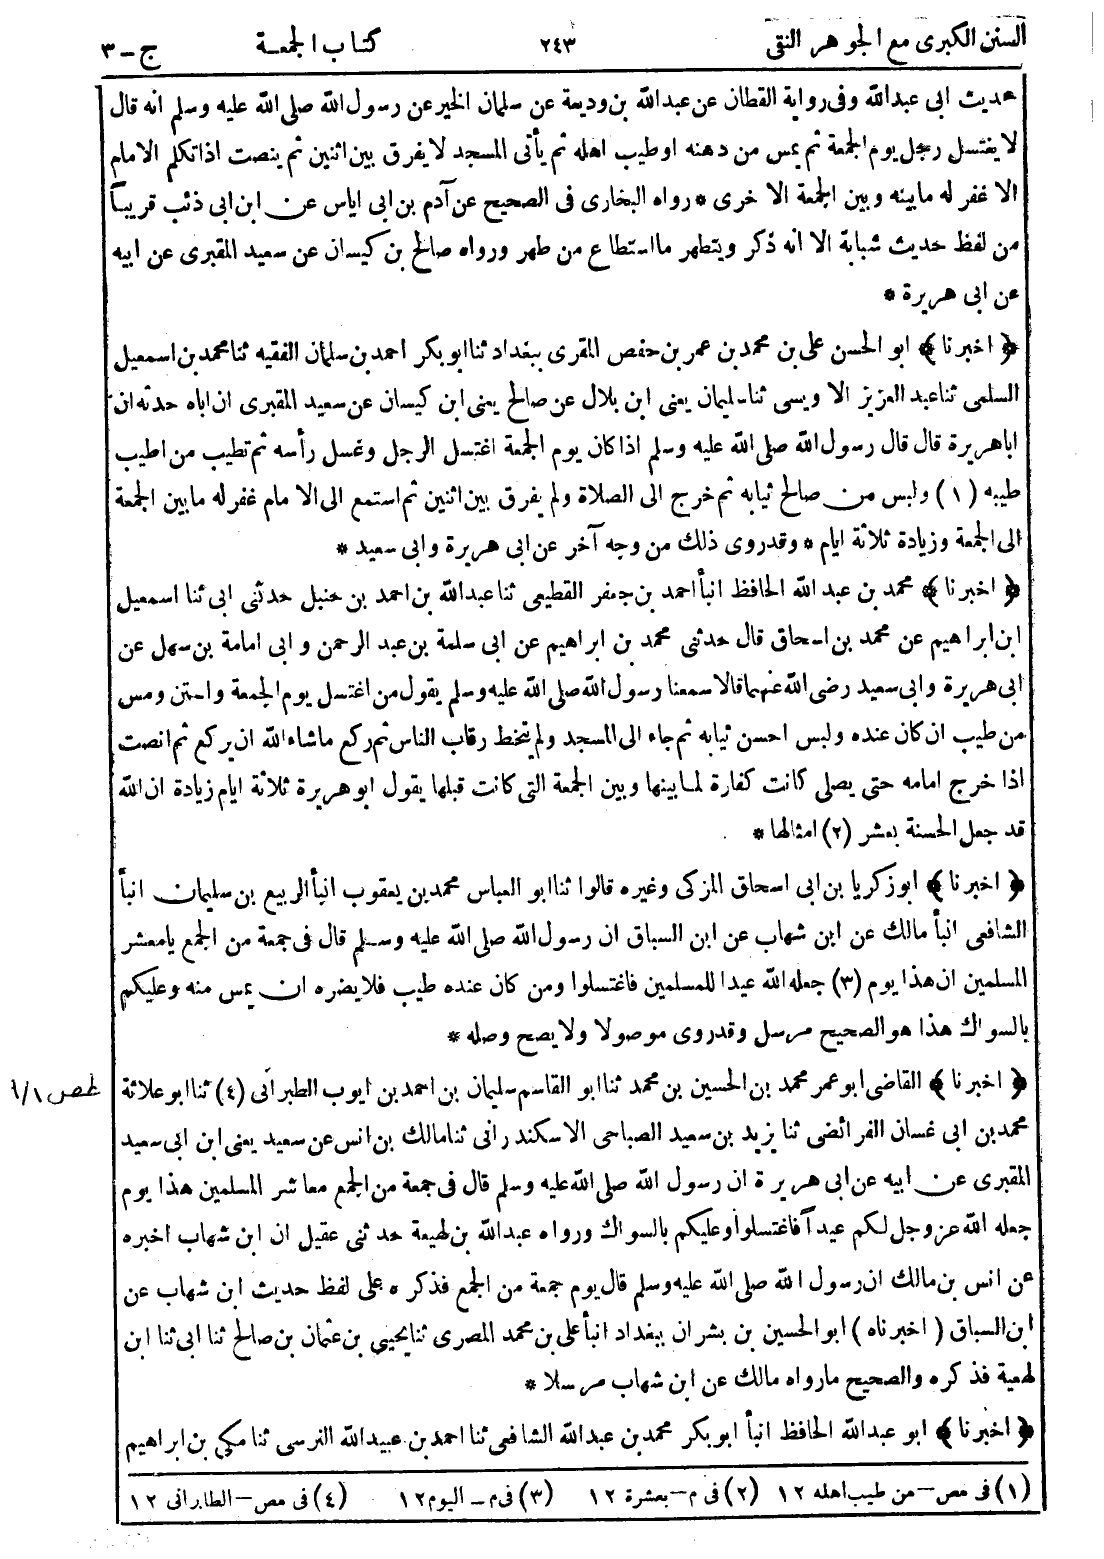 السنن الكبرى مع الجوهر النقى ٢٤٣ كتاب الجمعة ج-٣
حديث ابى عبدالله وفى رواية القطان عن عبدالله بن وديعة عن سلمان الخير عن رسول الله صلى الله عليه وسلم انه قال
لا يغتسل رجل يوم الجمعة ثم يمس من دهنه او طيب اهله ثم يأتى المسجد لا يفرق بين اثنين ثم ينصت اذا تكلم الامام
الا غفر له ما بينه وبين الجمعة الاخرى * رواه البخارى فى الصحيح عن آدم بن ابى اياس عن ابن ابى ذئب قريباً
من لفظ حديث شبابة الا انه ذكر ويتطهر ما استطاع من طهر ورواه صالح بن كيسان عن سعيد المقبرى عن ابيه
عن ابى هريرة *
﴿ اخبرنا ﴾ ابو الحسن على بن محمد بن عمر بن حفص المقرى ببغداد ثنا ابو بكر احمد بن سلمان الفقيه ثنا محمد بن اسمعيل
السلمى ثنا عبد العزيز الاويسى ثنا سليمان يعنى ابن بلال عن صالح يعنى ابن كيسان عن سعيد المقبرى ان اباه حدثه ان
ابا هريرة قال قال رسول الله صلى الله عليه وسلم اذا كان يوم الجمعة اغتسل الرجل وغسل رأسه ثم تطيب من اطيب
طيبه (١) ولبس من صالح ثيابه ثم خرج الى الصلاة ولم يفرق بين اثنين ثم استمع الى الامام غفر له ما بين الجمعة
الى الجمعة وزيادة ثلاثة ايام * وقدروى ذلك من وجه آخر عن ابى هريرة وابى سعيد *
﴿ اخبرنا ﴾ محمد بن عبد الله الحافظ انبأ احمد بن جعفر القطيعى ثنا عبدالله بن احمد بن حنبل حدثنى ابى ثنا اسمعيل
ابن ابراهيم عن محمد بن اسحاق قال حدثنى محمد بن ابراهيم عن ابى سلمة بن عبد الرحمن وابى امامة بن سهل عن
ابى هريرة وابى سعيد رضى الله عنهما قالا سمعنا رسول الله صلى الله عليه وسلم يقول من اغتسل يوم الجمعة واستن ومس
من طيب ان كان عنده ولبس احسن ثيابه ثم جاء الى المسجد ولم يتخط رقاب الناس ثم ركع ما شاء الله ان يركع ثم انصت
اذا خرج امامه حتى يصلى كانت كفارة لما بينها وبين الجمعة التى كانت قبلها يقول ابو هريرة ثلاثة ايام زيادة ان الله
قد جعل الحسنة بعشر (٢) امثالها *
﴿ اخبرنا ﴾ ابو زكريا بن ابى اسحاق المزكى وغيره قالوا ثنا ابو العباس محمد بن يعقوب انبأ الربيع بن سليمان انبأ
الشافعى انبأ مالك عن ابن شهاب عن ابن السباق ان رسول الله صلى الله عليه وسلم قال فى جمعة من الجمع يا معشر
المسلمين ان هذا يوم (٣) جعله الله عيدا للمسلمين فاغتسلوا ومن كان عنده طيب فلا يضره ان يمس منه وعليكم
بالسواك هذا هو الصحيح مرسل وقدروى موصولا ولا يصح وصله *
﴿ اخبرنا ﴾ القاضى ابو عمر محمد بن الحسين بن محمد ثنا ابو القاسم سليمان بن احمد بن ايوب الطبرانى (٤) ثنا ابو علاثة
محمد بن ابى غسان الفرائضى ثنا يزيد بن سعيد الصباحى الاسكندرانى ثنا مالك بن انس عن سعيد يعنى ابن ابى سعيد
المقبرى عن ابيه عن ابى هريرة ان رسول الله صلى الله عليه وسلم قال فى جمعة من الجمع معاشر المسلمين هذا يوم
جعله الله عز وجل لكم عيداً فاغتسلوا وعليكم بالسواك ورواه عبدالله بن لهيعة حدثنى عقيل ان ابن شهاب اخبره
عن انس بن مالك ان رسول الله صلى الله عليه وسلم قال يوم جمعة من الجمع فذكره على لفظ حديث ابن شهاب عن
ابن السباق ( اخبرناه ) ابو الحسين بن بشران ببغداد انبأ على بن محمد المصرى ثنا يحيى بن عثمان بن صالح ثنا ابى ثنا ابن
لهيعة فذكره والصحيح ما رواه مالك عن ابن شهاب مرسلا *
﴿ اخبرنا ﴾ ابو عبدالله الحافظ انبأ ابو بكر محمد بن عبدالله الشافعى ثنا احمد بن عبيدالله النرسى ثنا مكى بن ابراهيم
(١) فى مص-من طيب اهله ١٢ (٢) فى م-بعشرة ١٢ (٣) فى م-اليوم ١٢ (٤) فى مص-الطابرانى ١٢